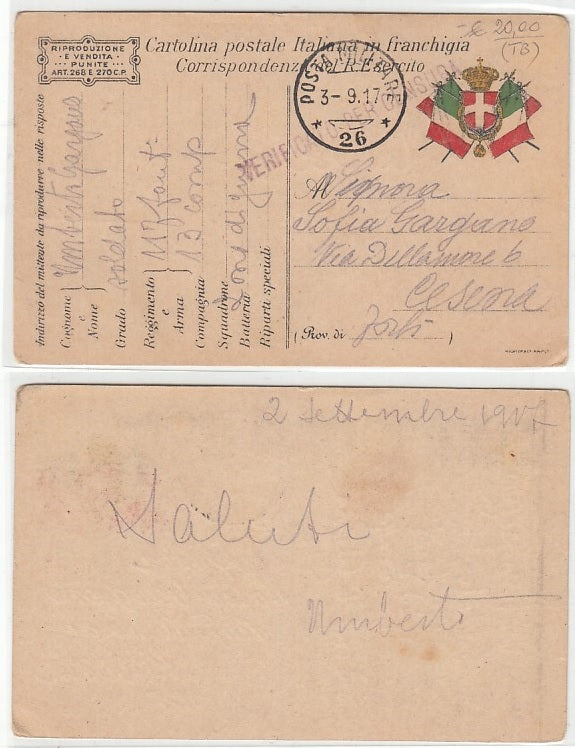 - € 20,00
(TB)
RIPRODUZIONE
E VENDITA
PUNITE
ART. 268 E 270 C.P.
Cartolina postale Italiana in franchigia
Corrispondenza del R. Esercito
POSTA MILITARE
3-9.17
26
VERIFICATO PER CENSURA
Indirizzo del mittente da riprodurre nelle risposte
Cognome e Nome } Umberto Gargano
Grado soldato
Reggimento e Arma } 117 fant.
Compagnia 13 Comp
Squadrone
Batteria Zona di guerra
Riparti speciali
Al Signora
Sofia Gargano
Via Dellamore 6
Cesena
(Prov. di Forlì )
2 Settembre 1917
Saluti
Umberto